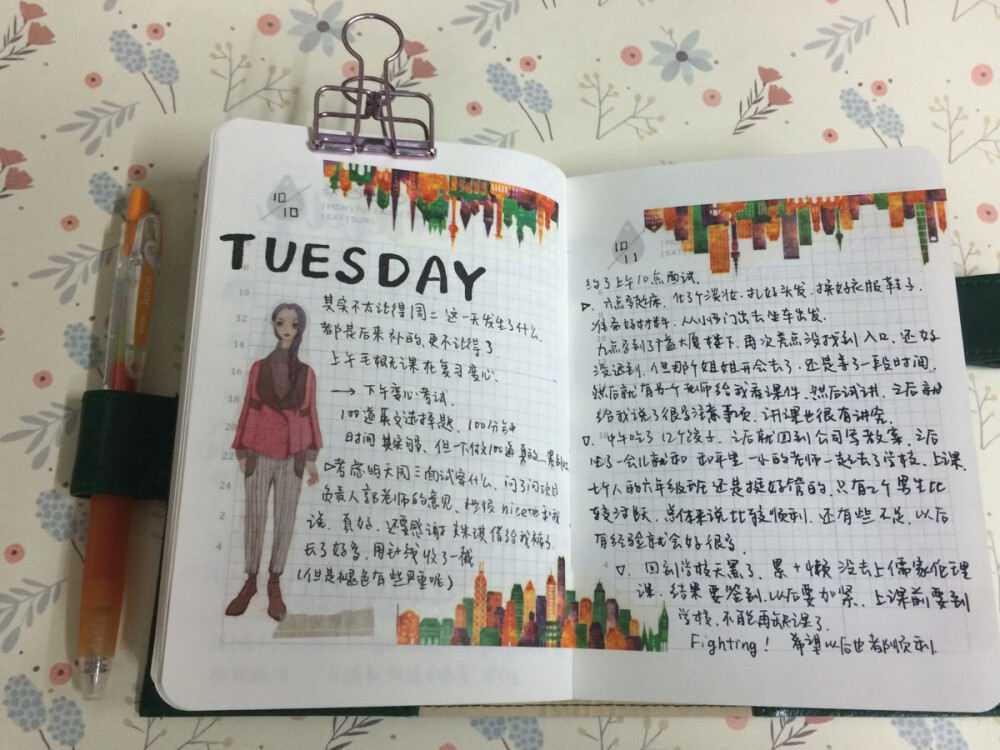 10
10
MON
SAT SUN
TUESDAY
10
12
22
24
2
4
其实不太记得周二这一天发生了什么
都是后来补的,更不记得了
上午毛概课在复习变心.
→ 下午变心考试.
100道英文选择题、100分钟
时间其实够、但一下做100道真的...累
▷考虑明天周三面试穿什么、问了问项目
负责人郭老师的意见、 nice地和我
说、真好、还要感谢 琪借给我裤子
长了好多、用针线收了一截
(但是褪色有些严重呢)
10
11
约了上午10点面试.
▷ 六点多起床、化了个淡妆、扎好头发、换好衣服鞋子.
准备好材料、从小西门出去坐车出发.
九点多到了 大厦楼下、再次 没找到入口、还好
没迟到、但那个姐姐开会去了、还是等了一段时间.
然后就有另个老师给我看课件、然后试讲、之后就
给我说了很多注意事项、讲课也很有讲究
▷ 中午吃了12个饺子、之后就回到公司写教案、之后
 了一会儿就和 和平里一小的老师一起去了学校、上课.
七个人的六年级班还是挺好管的、只有2个男生比
较活跃、总体来说比较顺利、还有些不足、以后
有经验就会好很多
▷ 回到学校天黑了、累+懒没去上儒家伦理
课、结果要签到、以后要加紧、上课前要到
学校、不能再缺课了
Fighting! 希望以后也都顺利.